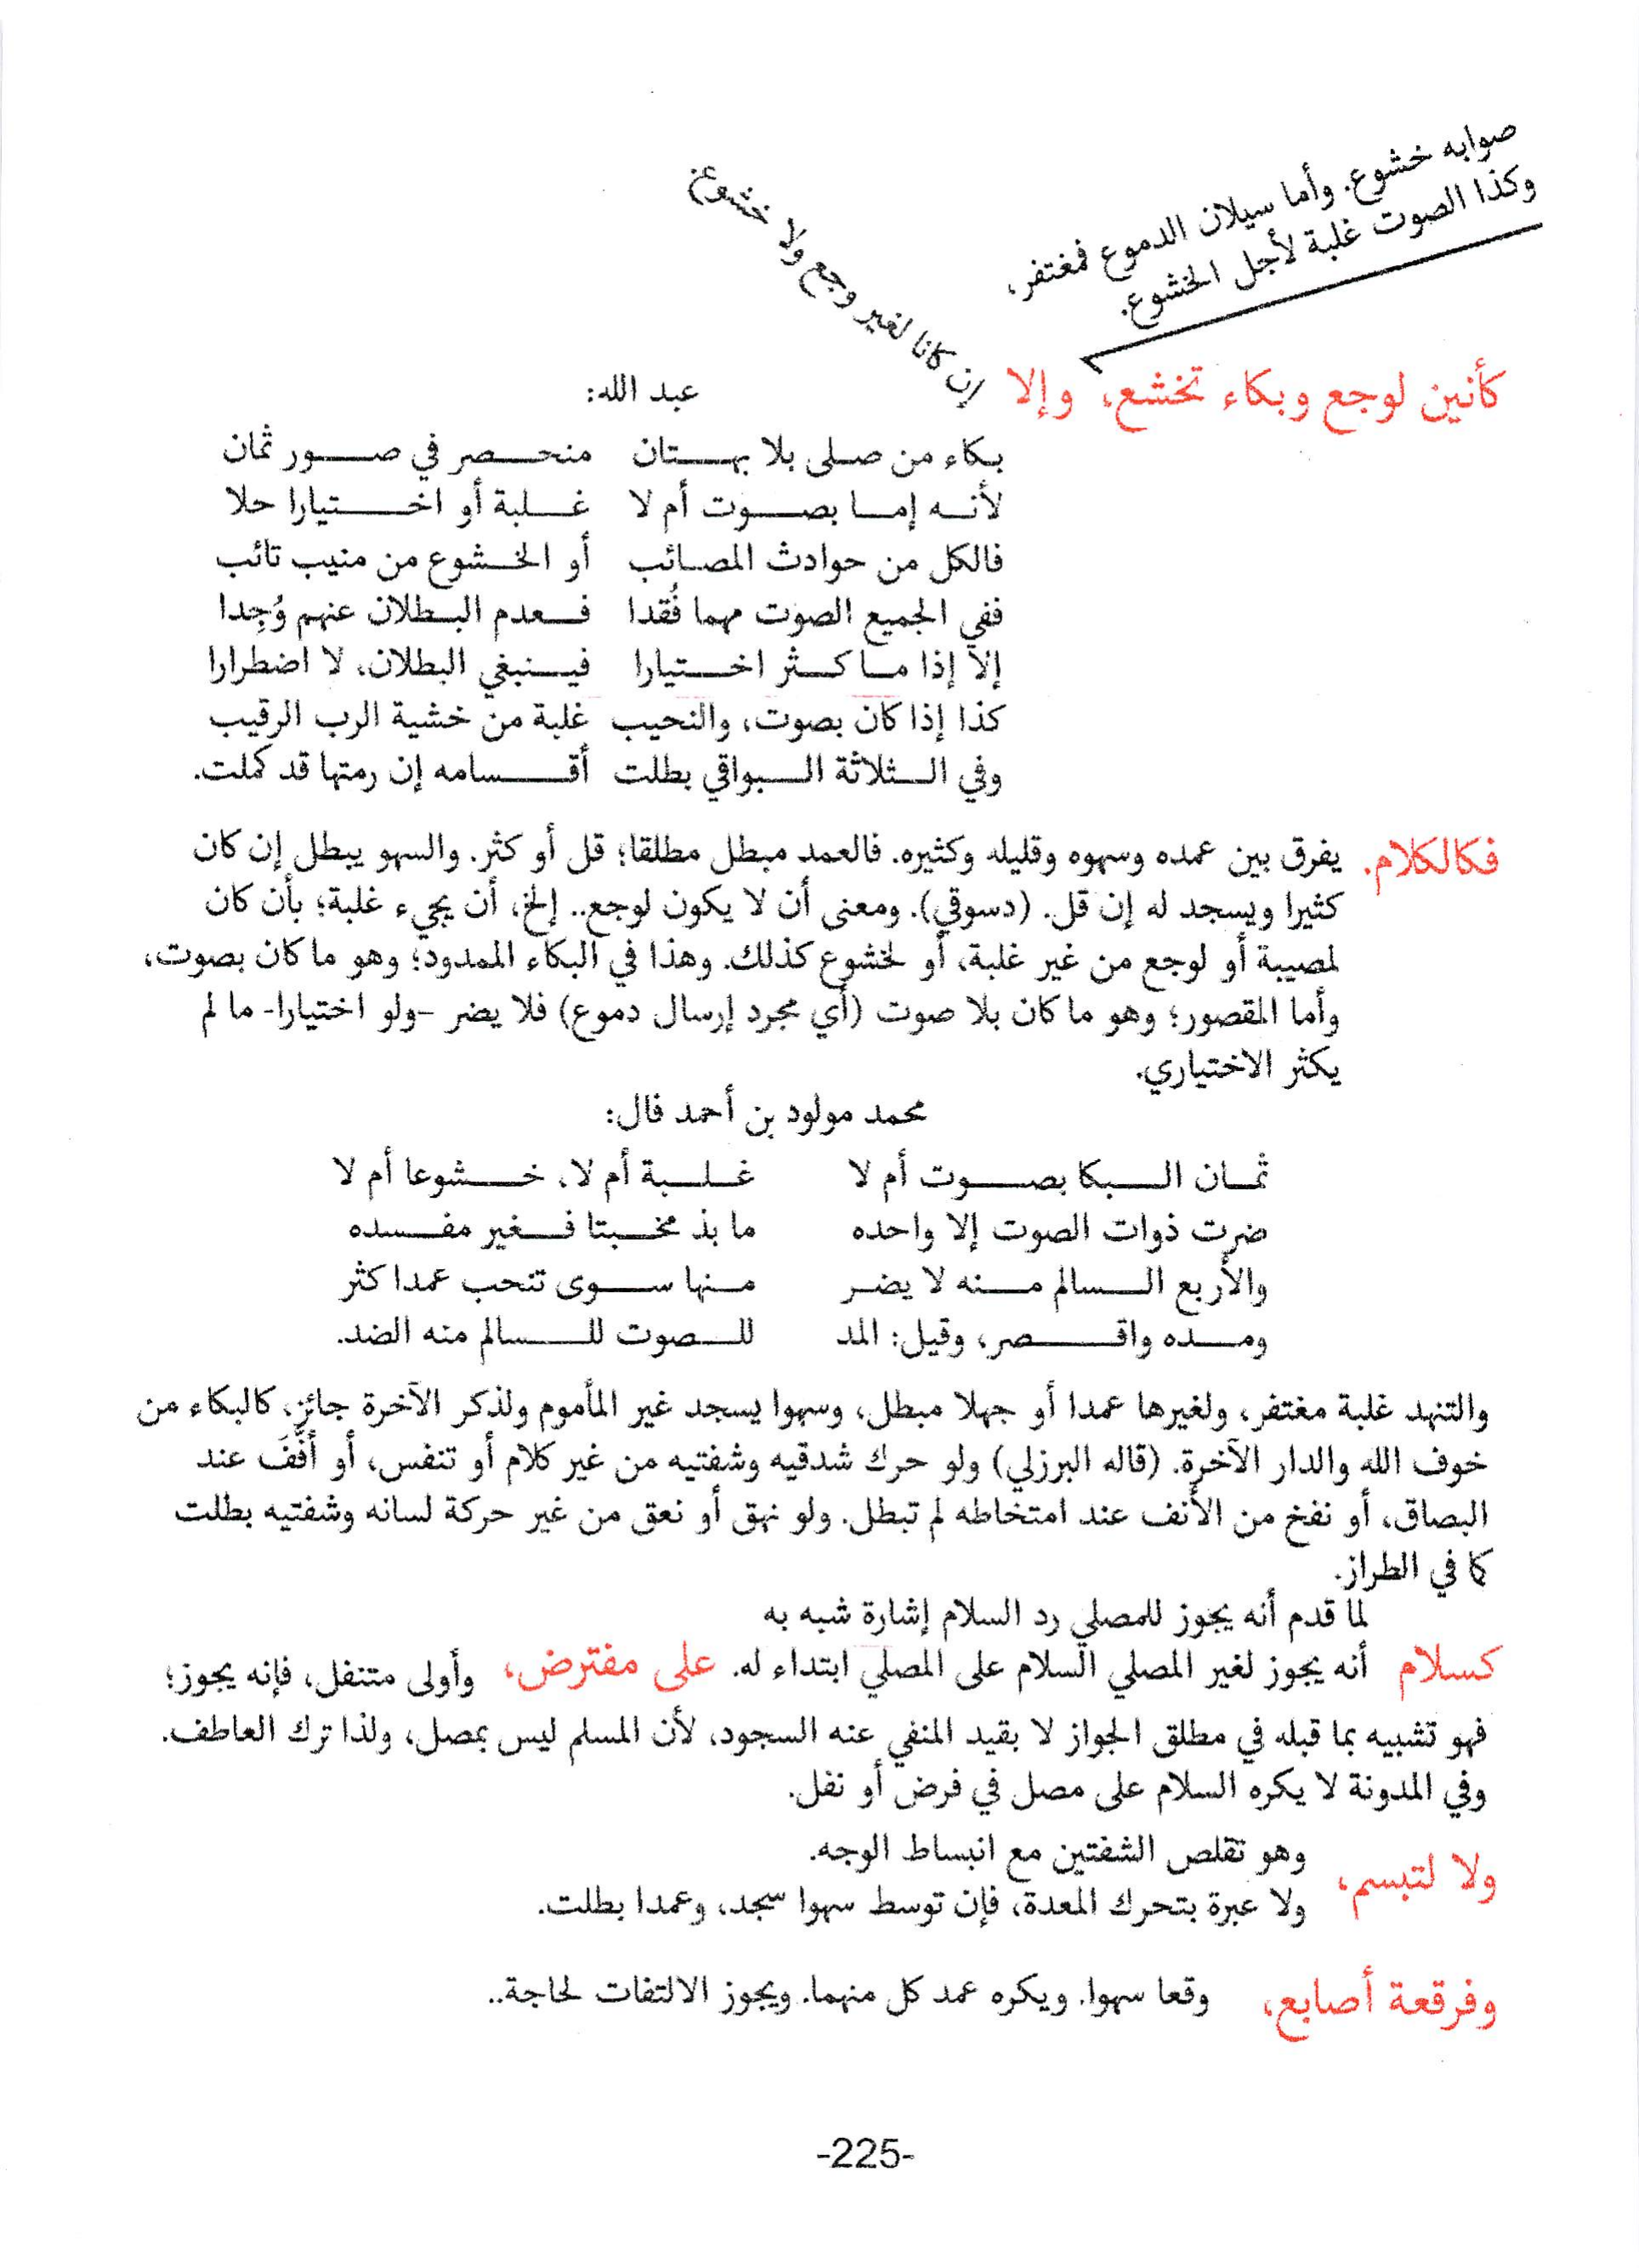 صوابه خشوع. وأما سيلان الدموع فمغتفر،
وكذا الصوت غلبة لأجل الخشوع.
كأنين لوجع وبكاء تخشع، وإلا
إن كانا لغير وجع ولا خشوع
عبد الله:
بكاء من صلى بلا بهتان منحصر في صور ثمان
لأنه إما بصوت أم لا غلبة أو اختيارا حلا
فالكل من حوادث المصائب أو الخشوع من منيب تائب
ففي الجميع الصوت مهما فُقدا فعدم البطلان عنهم وُجِدا
إلا إذا ما كثر اختيارا فينبغي البطلان، لا اضطرارا
كذا إذا كان بصوت، والنحيب غلبة من خشية الرب الرقيب
وفي الثلاثة البواقي بطلت أقسامه إن رمتها قد كملت.
فكالكلام. يفرق بين عمده وسهوه وقليله وكثيره. فالعمد مبطل مطلقا؛ قل أو كثر. والسهو يبطل إن كان
كثيرا ويسجد له إن قل. (دسوقي). ومعنى أن لا يكون لوجع.. إلخ، أن يجيء غلبة؛ بأن كان
لمصيبة أو لوجع من غير غلبة، أو لخشوع كذلك. وهذا في البكاء الممدود؛ وهو ما كان بصوت،
وأما المقصور؛ وهو ما كان بلا صوت (أي مجرد إرسال دموع) فلا يضر -ولو اختيارا- ما لم
يكثر الاختياري.
محمد مولود بن أحمد فال:
ثمان البكا بصوت أم لا غلبة أم لا، خشوعا أم لا
ضرت ذوات الصوت إلا واحده ما بذ مخبتا فغير مفسده
والأربع السالم منه لا يضر منها سوى تنحب عمدا كثر
ومده واقصر، وقيل: المد للصوت للسالم منه الضد.
والتنهد غلبة مغتفر، ولغيرها عمدا أو جهلا مبطل، وسهوا يسجد غير المأموم ولذكر الآخرة جائز، كالبكاء من
خوف الله والدار الآخرة. (قاله البرزلي) ولو حرك شدقيه وشفتيه من غير كلام أو تنفس، أو أفَّفَ عند
البصاق، أو نفخ من الأنف عند امتخاطه لم تبطل. ولو نهق أو نعق من غير حركة لسانه وشفتيه بطلت
كما في الطراز.
لما قدم أنه يجوز للمصلي رد السلام إشارة شبه به
كسلام أنه يجوز لغير المصلي السلام على المصلي ابتداء له. على مفترض، وأولى متنفل، فإنه يجوز؛
فهو تشبيه بما قبله في مطلق الجواز لا بقيد المنفي عنه السجود، لأن المسلم ليس بمصل، ولذا ترك العاطف.
وفي المدونة لا يكره السلام على مصل في فرض أو نفل.
وهو تقلص الشفتين مع انبساط الوجه.
ولا لتبسم،
ولا عبرة بتحرك المعدة، فإن توسط سهوا سجد، وعمدا بطلت.
وفرقعة أصابع، وقعا سهوا. ويكره عمد كل منهما. ويجوز الالتفات لحاجة..
-225-